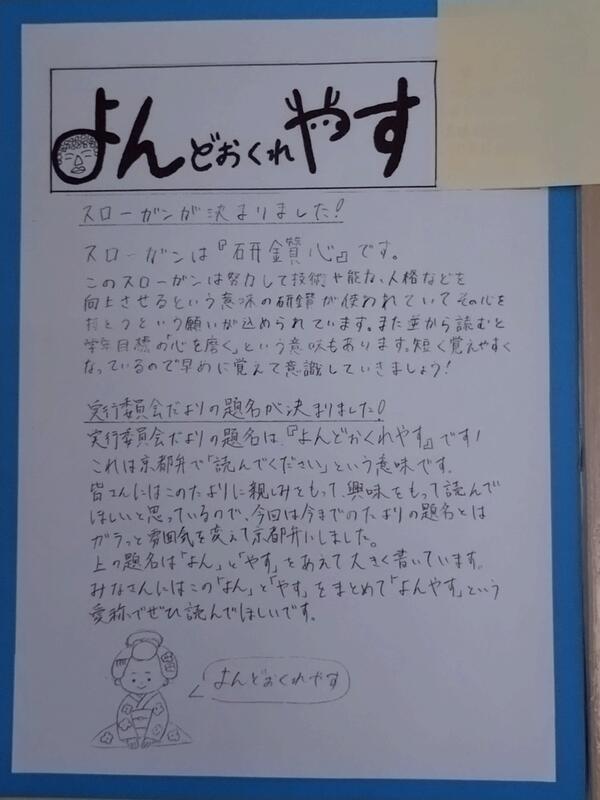 よんどおくれやす
スローガンが決まりました!
スローガンは『研鑽心』です。
このスローガンは努力して技術や能力、人格などを
向上させるという意味の研鑽が使われていてその心を
持とうという願いが込められています。また逆から読むと
学年目標の「心を磨く」という意味もあります。短く覚えやすく
なっているので早めに覚えて意識していきましょう!
実行委員会だよりの題名が決まりました!
実行委員会だよりの題名は、『よんどおくれやす』です!
これは京都弁で「読んでください」という意味です。
皆さんにはこのたよりに親しみをもって、興味をもって読んで
ほしいと思っているので、今回は今までのたよりの題名とは
ガラっと雰囲気を変えて京都弁にしました。
上の題名は「よん」と「やす」をあえて大きく書いています。
みなさんにはこの「よん」と「やす」をまとめて「よんやす」という
愛称でぜひ読んでほしいです。
よんどおくれやす